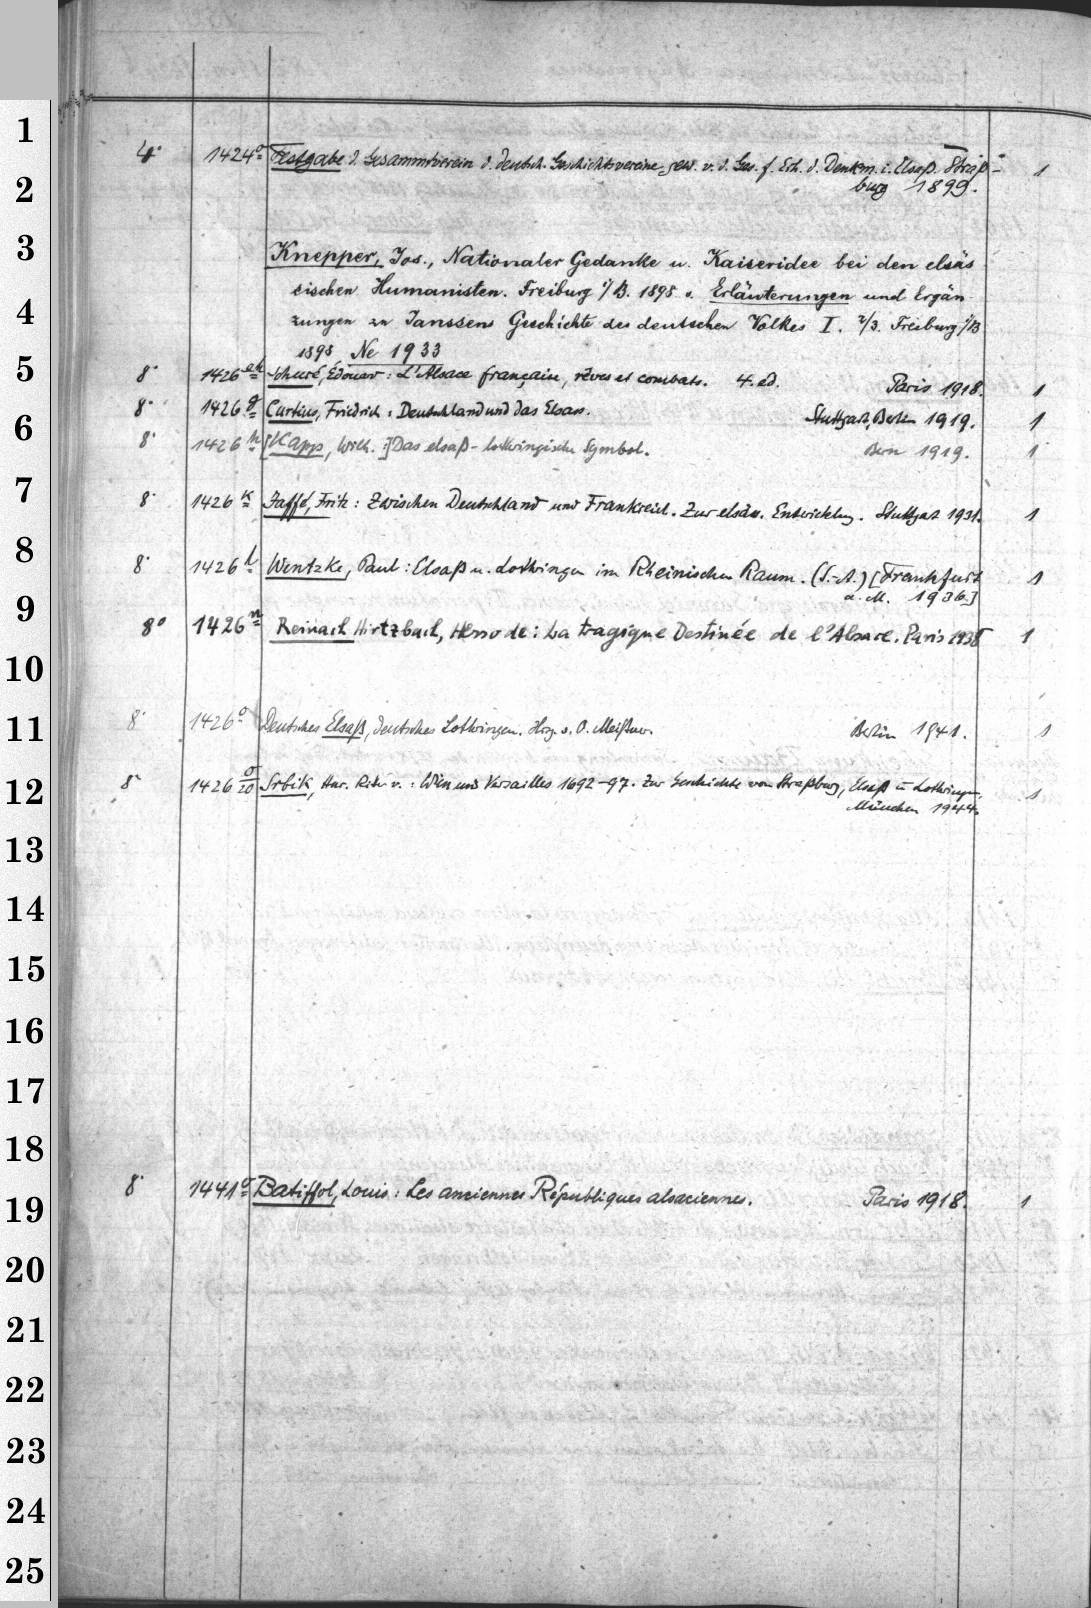 1
4° 1424a Festgabe d. Gesammtverein d. deutsch. Geschichtsvereine, gew. v. d. Ges. f. Erh. d. Denkm. i. Elsaß. Straß- 1
2
burg 1899.
3
Knepper, Jos., Nationaler Gedanke u. Kaiseridee bei den elsäs
4
sischen Humanisten. Freiburg i/B. 1898. Erläuterungen und Ergän
zungen zu Janssens Geschichte des deutschen Volkes I. 2/3. Freiburg i/B
1898 Ne 1933
5
8° 1426 Schuré, Édouard: L'Alsace française, rêves et combats. 4. ed. Paris 1918. 1
8° 1426g Curtius, Friedrich: Deutschland und das Elsass. Stuttgart, Berlin 1919. 1
6
8° 1426h [Kapp, Wilh.:] Das elsaß-lothringische Symbol. Bern 1919. 1
7
8° 1426k Jaffé, Fritz: Zwischen Deutschland und Frankreich. Zur elsäss. Entwicklung. Stuttgart 1931. 1
8
8° 1426l Wentzke, Paul: Elsaß u. Lothringen im Rheinischen Raum. (S.-A.) [Frankfurt 1
a. M. 1936.]
9
8° 1426n Reinach Hirtzbach, Hesso de: La tragique Destinée de l'Alsace. Paris 1938 1
10
11
8° 1426o Deutsches Elsaß, deutsches Lothringen. Hrsg. v. O. Meißner. Berlin 1941. 1
12
8° 1426 o/20 Srbik, Hnr. Ritter v.: Wien und Versailles 1692-97. Zur Geschichte von Straßburg, Elsaß u. Lothringen. 1
München 1944.
13
14
15
16
17
18
19
8° 1441a Batiffol, Louis: Les anciennes Républiques alsaciennes. Paris 1918. 1
20
21
22
23
24
25